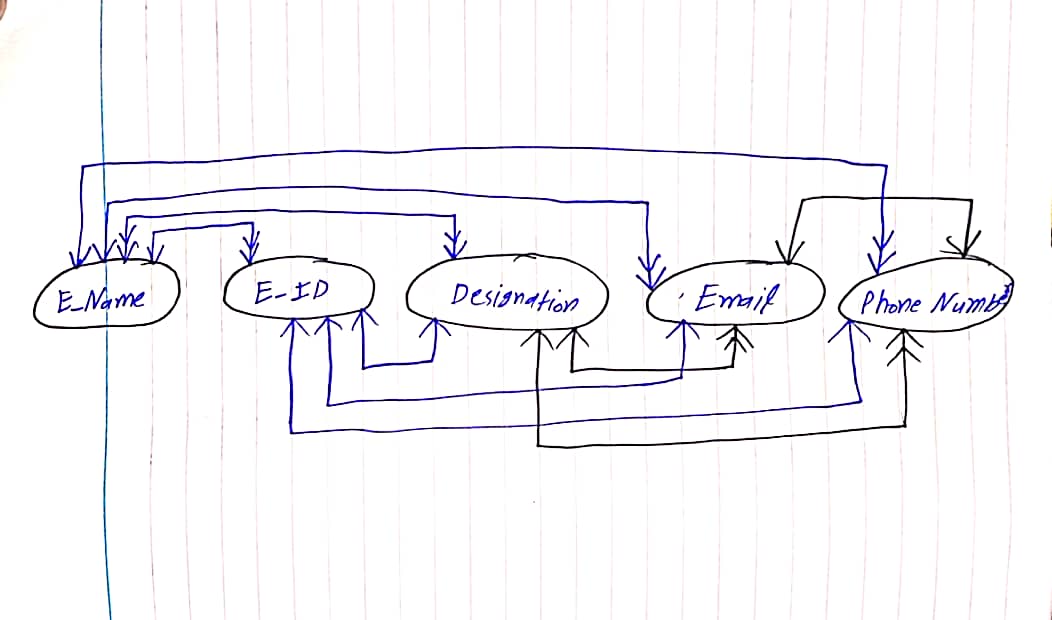 E_Name
E-ID
Designation
Email
Phone Number